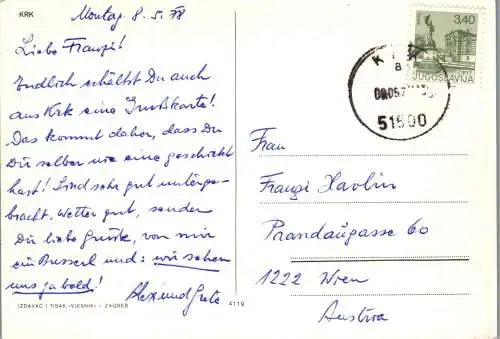 KRK
Montag 8.5.78
Liebe Franzi!
Endlich erhältst Du auch
aus Krk eine Grußkarte!
Das kommt daher, dass Du
Du selber nie eine geschickt
hast! Sind sehr gut unterge-
bracht, Wetter gut, senden
Dir liebe Grüße, von mir
ein Busserl und: wir sehen
uns ja bald!
Alex und Grete
IZDAVAČ I TISAK «VJESNIK» - ZAGREB
4119
3,40
JUGOSLAVIJA
51500
Frau
Franzi Havlin
Prandaugasse 60
1222 Wien
Austria